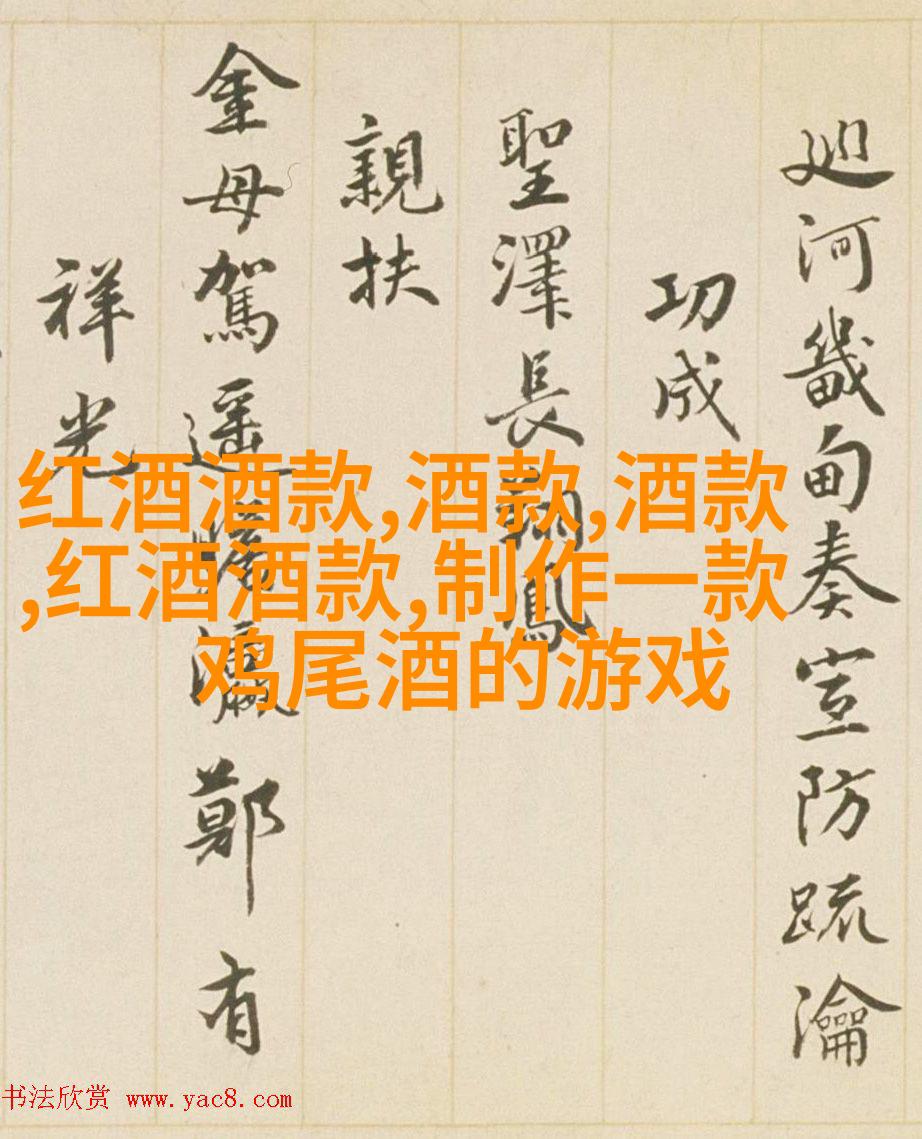 廵河畿甸奏宣防疏瀹
功成
聖澤長翔鳳
親扶
金母駕遥瞻瀛鄭有
祥光
红酒酒款,酒款,酒款
,红酒酒款,制作一款
鸡尾酒的游戏
书法欣赏 www.yac8.com